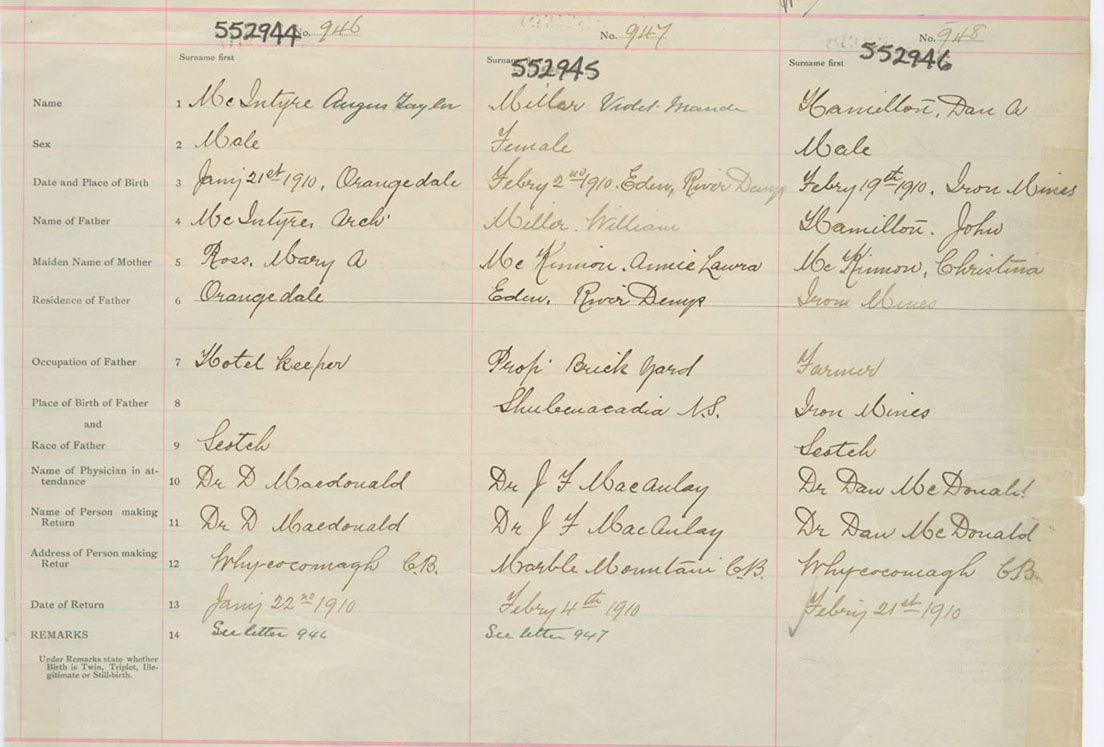 552944 No. 946 No. 947 No. 948
Surname first Surname first 552945 Surname first 552946
Name 1 McIntyre Angus Taylor Miller Violet Maude Hamilton, Dan A
Sex 2 Male Female Male
Date and Place of Birth 3 Jany 21st 1910, Orangedale Febry 2nd 1910. Eden, River Denys Febry 19th 1910, Iron Mines
Name of Father 4 McIntyre, Arch' Miller William Hamilton. John
Maiden Name of Mother 5 Ross. Mary A McKinnon. Annie Laura McKinnon, Christina
Residence of Father 6 Orangedale Eden, River Denys Iron Mines
Occupation of Father 7 Hotel Keeper Prop' Brick Yard Farmer
Place of Birth of Father 8 Shubenacadia N.S. Iron Mines
and
Race of Father 9 Scotch Scotch
Name of Physician in at-
tendance 10 Dr D Macdonald Dr J F MacAulay Dr Dan McDonald
Name of Person making
Return 11 Dr D Macdonald Dr J F MacAulay Dr Dan McDonald
Address of Person making
Retur 12 Whycocomagh C.B. Marble Mountain C.B. Whycocomagh C.B.
Date of Return 13 Jany 22nd 1910 Febry 4th 1910 Febry 21st 1910
REMARKS 14 See letter 946 See letter 947
Under Remarks state whether
Birth is Twin, Triplet, Ille-
gitimate or Still-birth.